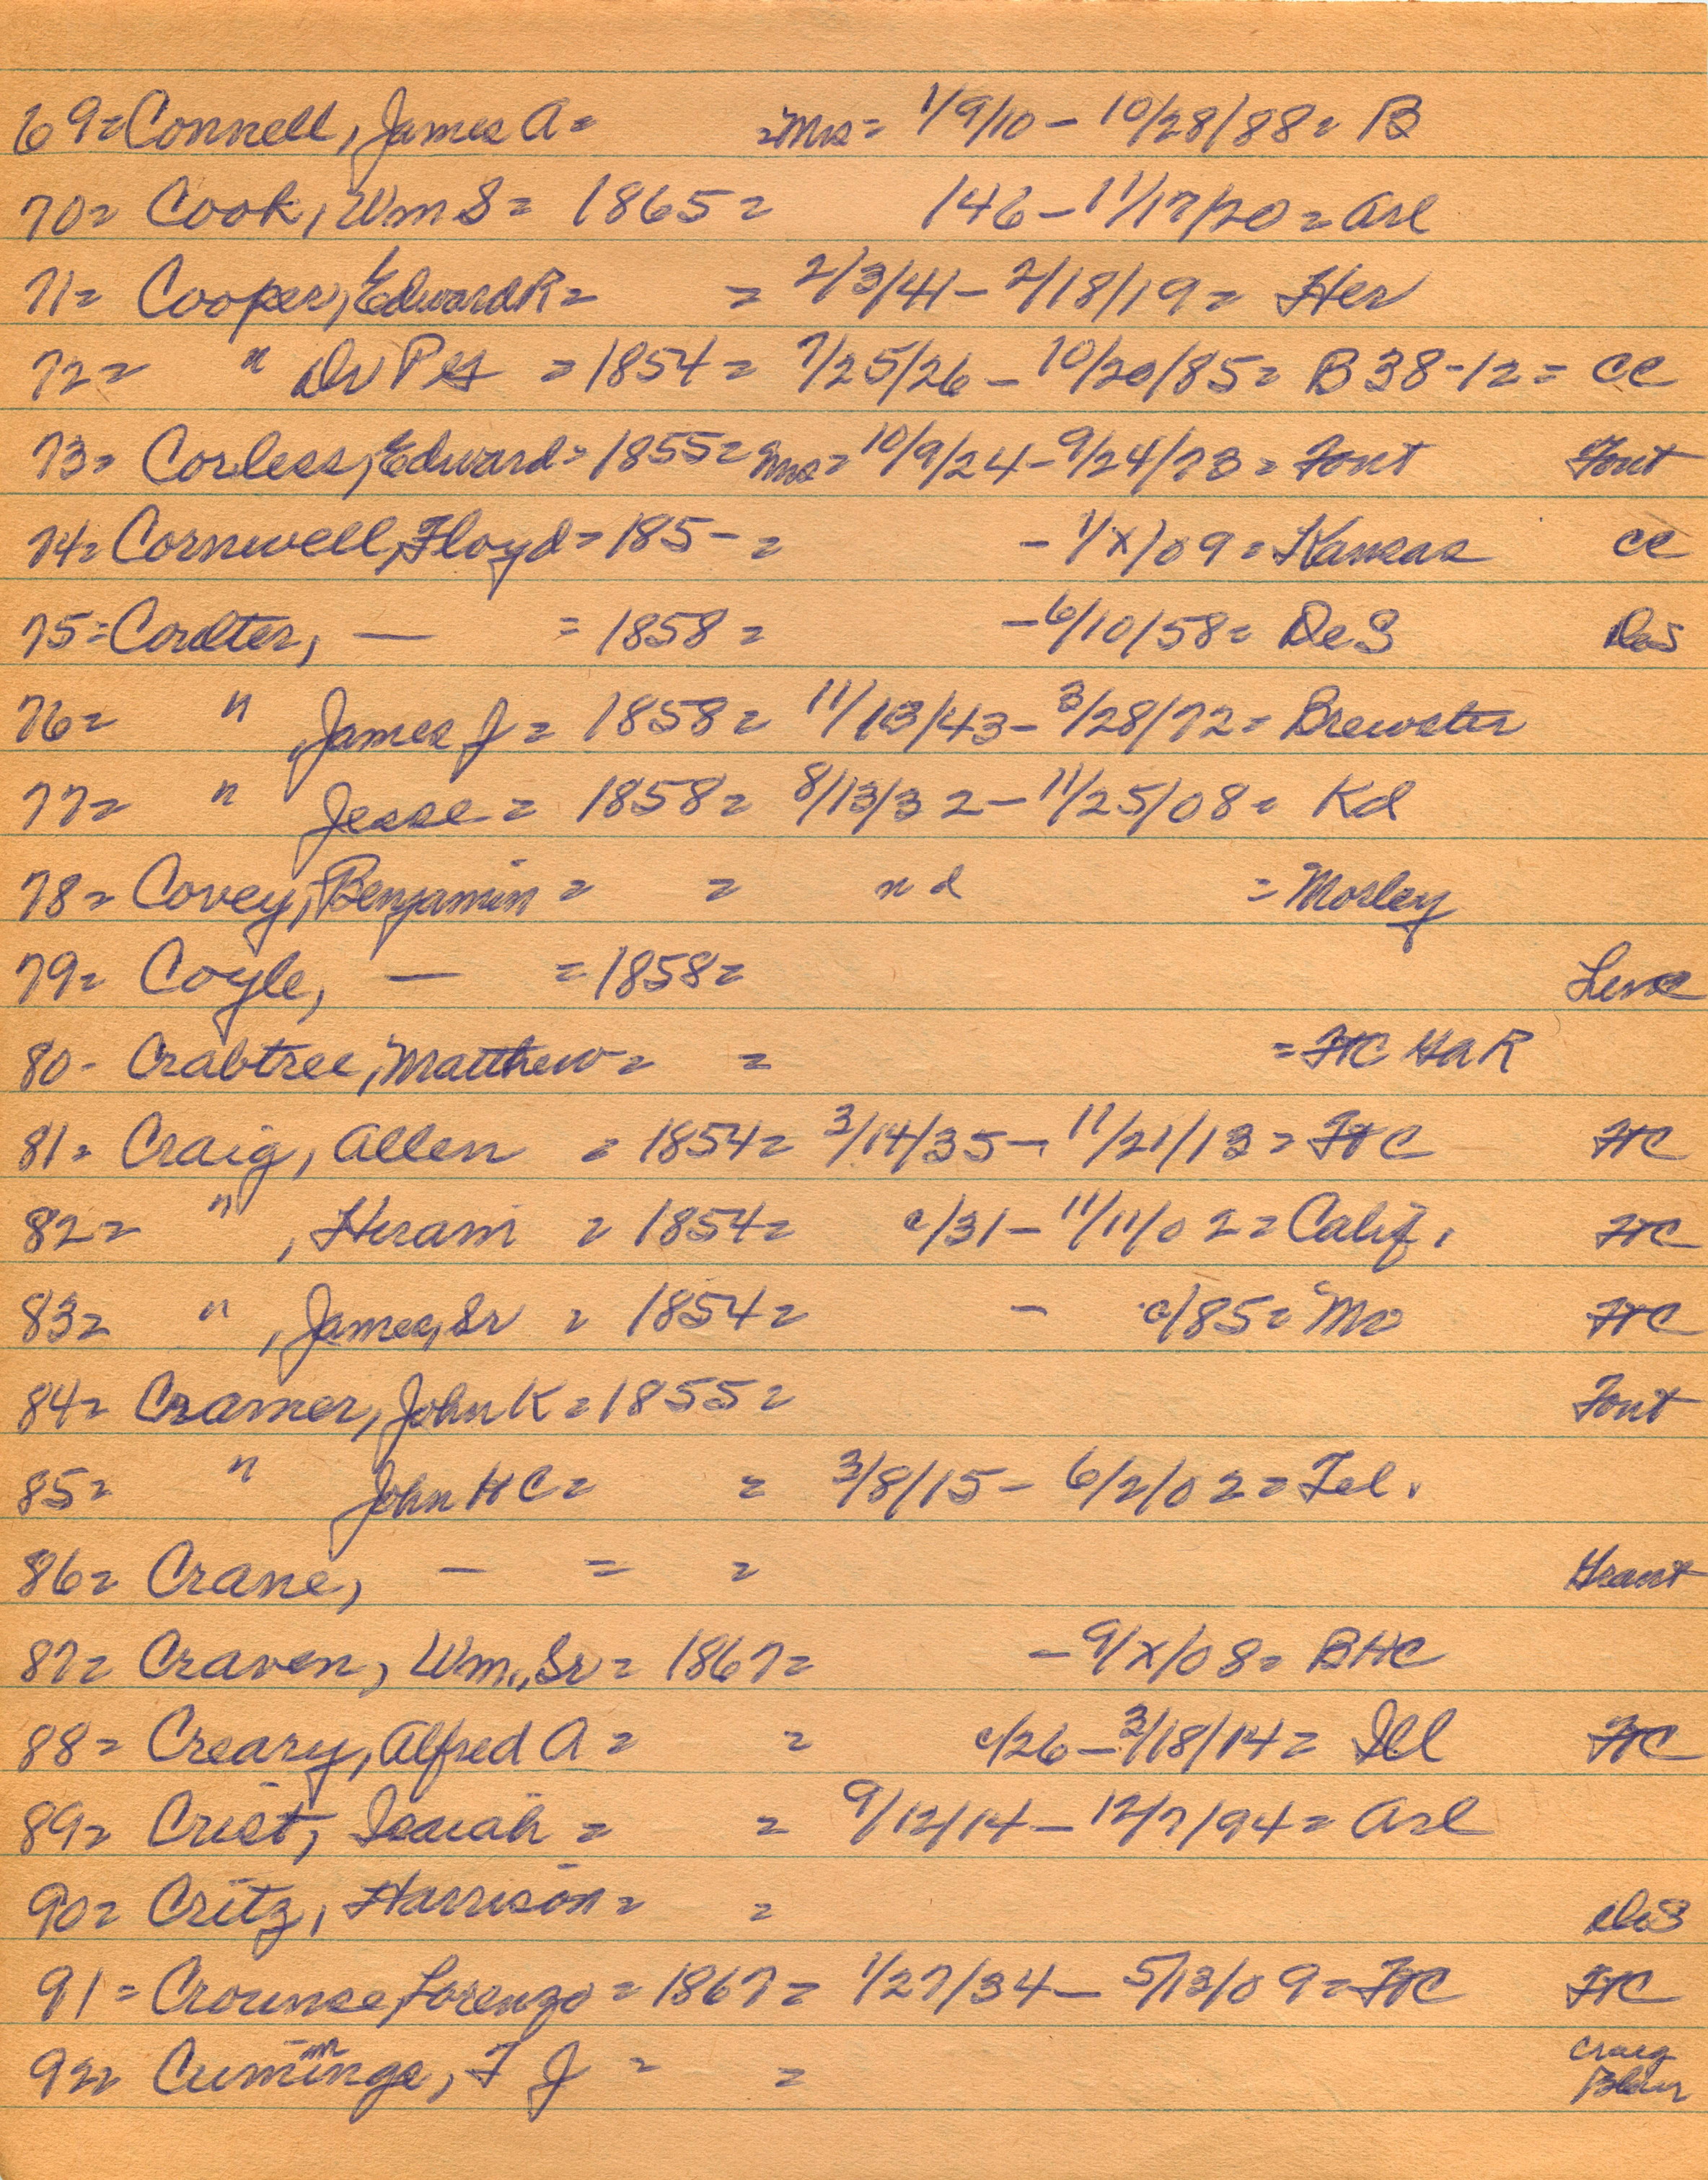 69= Connell, James A= =Mrs= 1/9/10 - 10/28/88= B
70= Cook, Wm S= 1865= 146 - 11/17/20= Arl
71= Cooper, Edward R= = 2/3/41 - 2/18/19= Her
72= " Dr P = 1854= 7/25/26 - 10/20/85= B 38-12= CC
73= Corless, Edward= 1855= Mrs= 10/9/24 - 9/24/73= Font Font
74= Cornwell, Floyd= 185-= - 1/x/09= Kansas CC
75= Coulter, — = 1858= - 6/10/58= DeS DeS
76= " , James J= 1858= 11/13/43 - 3/28/72= Brewster
77= " Jesse= 1858= 8/13/32 - 11/25/08= Kd
78= Covey, Benjamin= = nd = Mosley
79= Coyle, — = 1858=
80- Crabtree, Matthew= = = FtC GAR
81= Craig, Allen = 1854= 3/14/35 - 11/21/13= FtC FtC
82= " , Hiram = 1854= c/31 - 11/11/02= Calif. FtC
83= " , James, Sr = 1854= - c/85= Mo FtC
84= Cramer, John K= 1855= Font
85= " John H C= = 3/8/15 - 6/2/02= Tel.
86= Crane, — = = Grant
87= Craven, Wm., Sr= 1867= - 9/x/08= BHC
88= Creary, Alfred A= = c/26 - 3/18/14= Ill FtC
89= Crist, Isaiah= = 9/12/14 - 12/7/94= Arl
90= Critz, Harrison= = DeS
91= Crounse, Lorenzo= 1867= 1/27/34 - 5/13/09= FtC FtC
92= Cummings, F J = = Craig
Blair